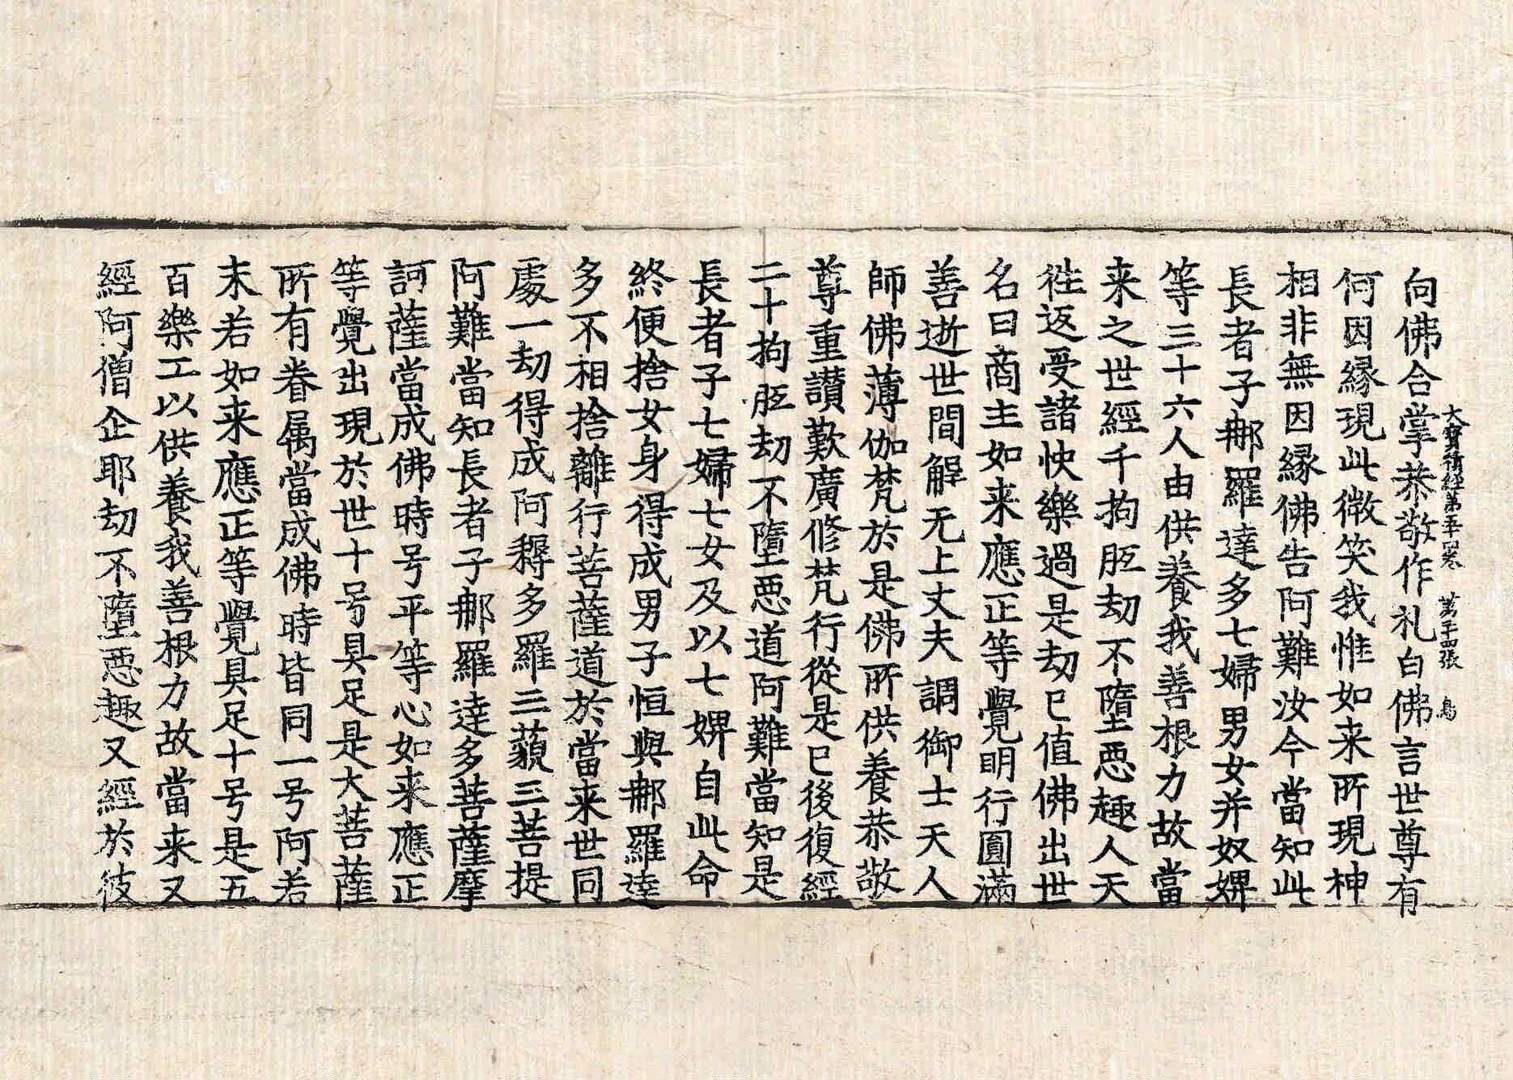 大寶積經第五十四卷 第二十四張 鳥
向佛合掌恭敬作礼白佛言世尊有
何因緣現此微笑我惟如来所現神
相非無因緣佛告阿難汝今當知此
長者子那羅達多七婦男女并奴婢
等三十六人由供養我善根力故當
来之世經千拘胝劫不墮惡趣人天
往返受諸快樂過是劫已值佛出世
名曰商主如来應正等覺明行圓滿
善逝世間解无上丈夫調御士天人
師佛薄伽梵於是佛所供養恭敬
尊重讚歎廣修梵行從是已後復經
二十拘胝劫不墮惡道阿難當知是
長者子七婦七女及以七婢自此命
終便捨女身得成男子恒與那羅達
多不相捨離行菩薩道於當来世同
處一劫得成阿耨多羅三藐三菩提
阿難當知長者子那羅達多菩薩摩
訶薩當成佛時号平等心如来應正
等覺出現於世十号具足是大菩薩
所有眷属當成佛時皆同一号阿若
末若如来應正等覺具足十号是五
百樂工以供養我善根力故當来又
經阿僧企耶劫不墮惡趣又經於彼